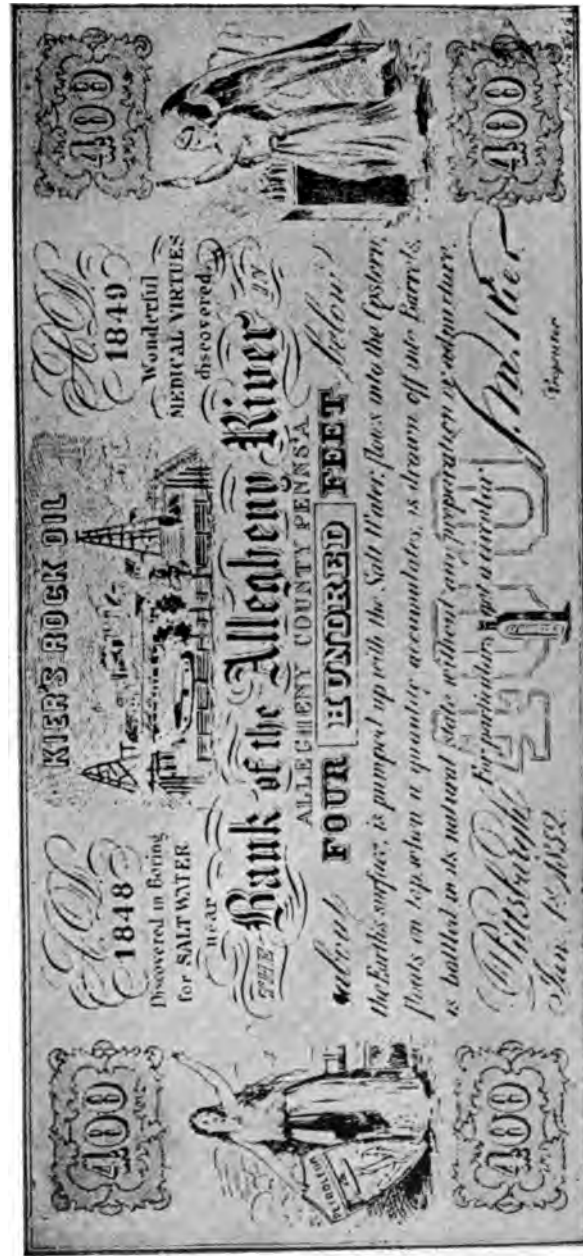 400
KIER'S ROCK OIL
400
A.D.
1848
Discovered in Boring
for SALT WATER
near
A.D.
1849
Wonderful
MEDICAL VIRTUES
discovered,
THE Bank of the Allegheny River IN
ALLEGHENY COUNTY PENNS'A
about FOUR HUNDRED FEET below
the Earth's surface, is pumped up with the Salt Water, flows into the Cistern,
floats on top, when a quantity accumulates, is drawn off into Barrels,
is bottled in its natural state without any preparation or admixture.
For particulars get a circular
Pittsburgh
Jan. 1st 1852
S.M. Kier
Proprietor
400
400